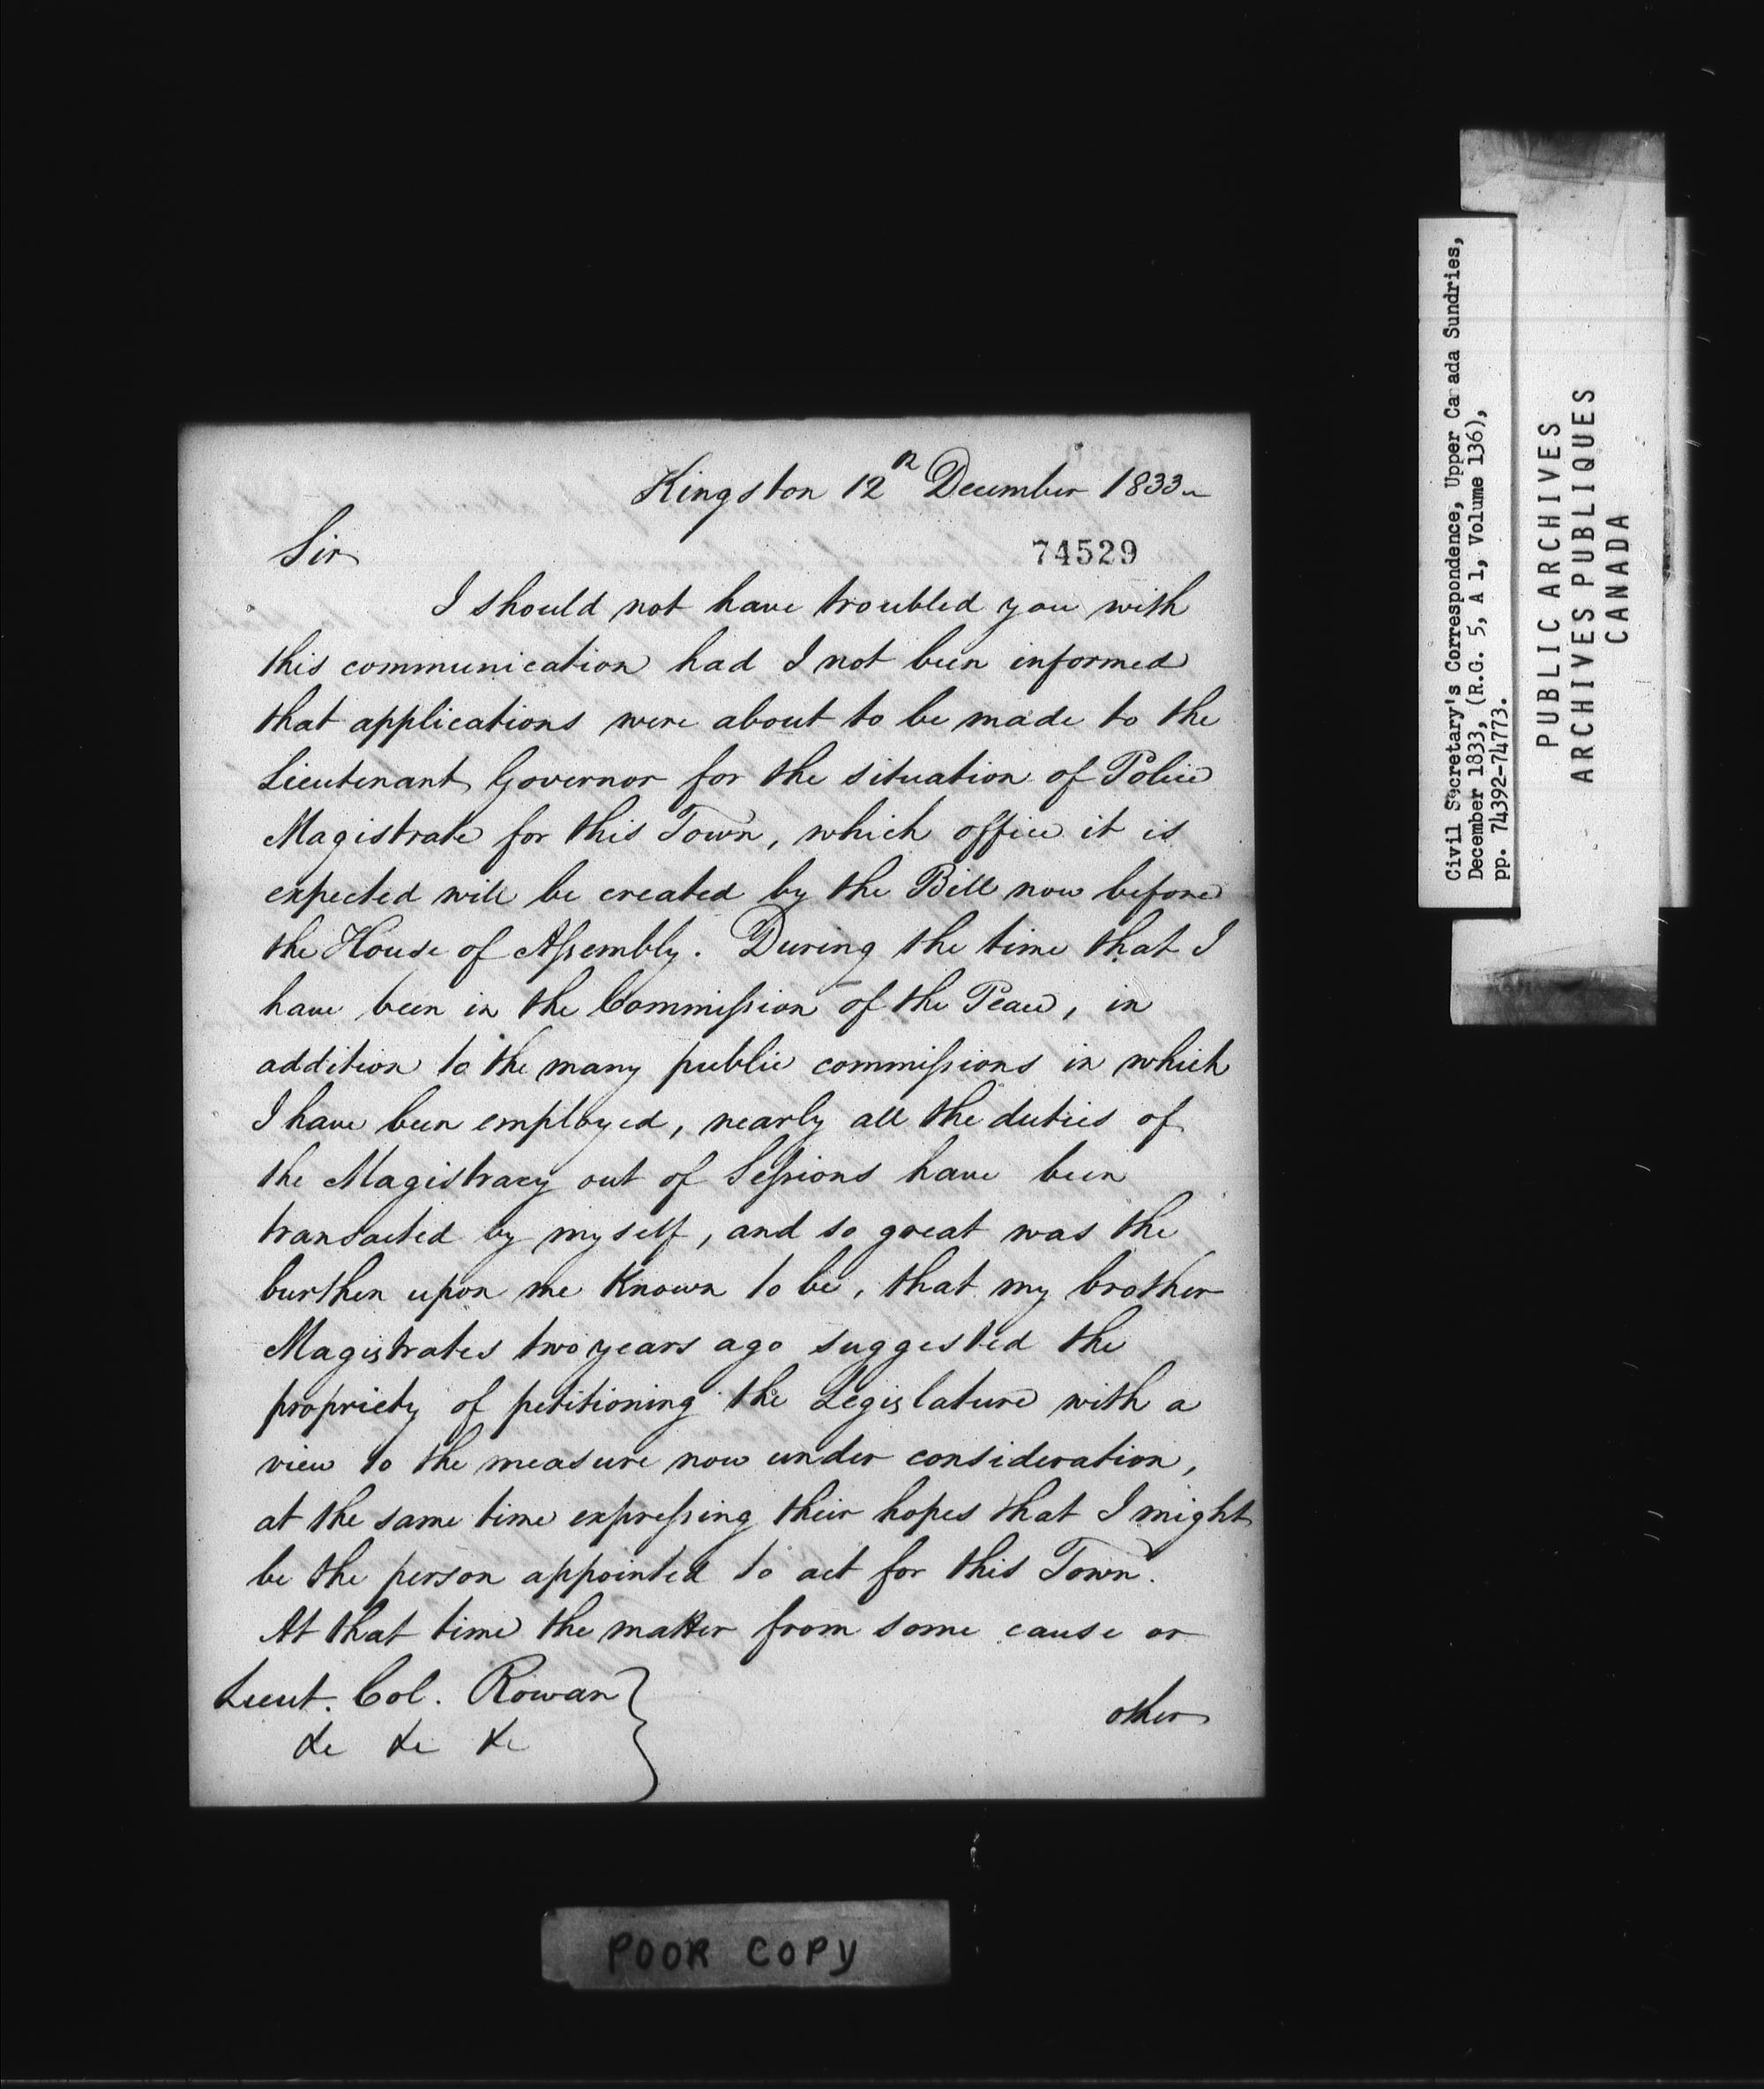 Kingston 12th December 1833
Sir
74529
I should not have troubled you with
this communication had I not been informed
that applications were about to be made to the
Lieutenant Governor for the situation of Police
Magistrate for this Town, which office it is
expected will be created by the Bill now before
the House of Assembly. During the time that I
have been in the Commission of the Peace, in
addition to the many public commissions in which
I have been employed, nearly all the duties of
the Magistracy out of Sessions have been
transacted by myself, and so great was the
burthen upon me Known to be, that my brother
Magistrates two years ago suggested the
propriety of petitioning the Legislature with a
view to the measure now under consideration,
at the same time expressing their hopes that I might
be the person appointed to act for this Town.
At that time the matter from some cause or
other
Lieut. Col. Rowan
&c &c &c
Civil Secretary's Correspondence, Upper Canada Sundries,
December 1833, (R.G. 5, A 1, Volume 136),
pp. 74392-74773.
PUBLIC ARCHIVES
ARCHIVES PUBLIQUES
CANADA
POOR COPY